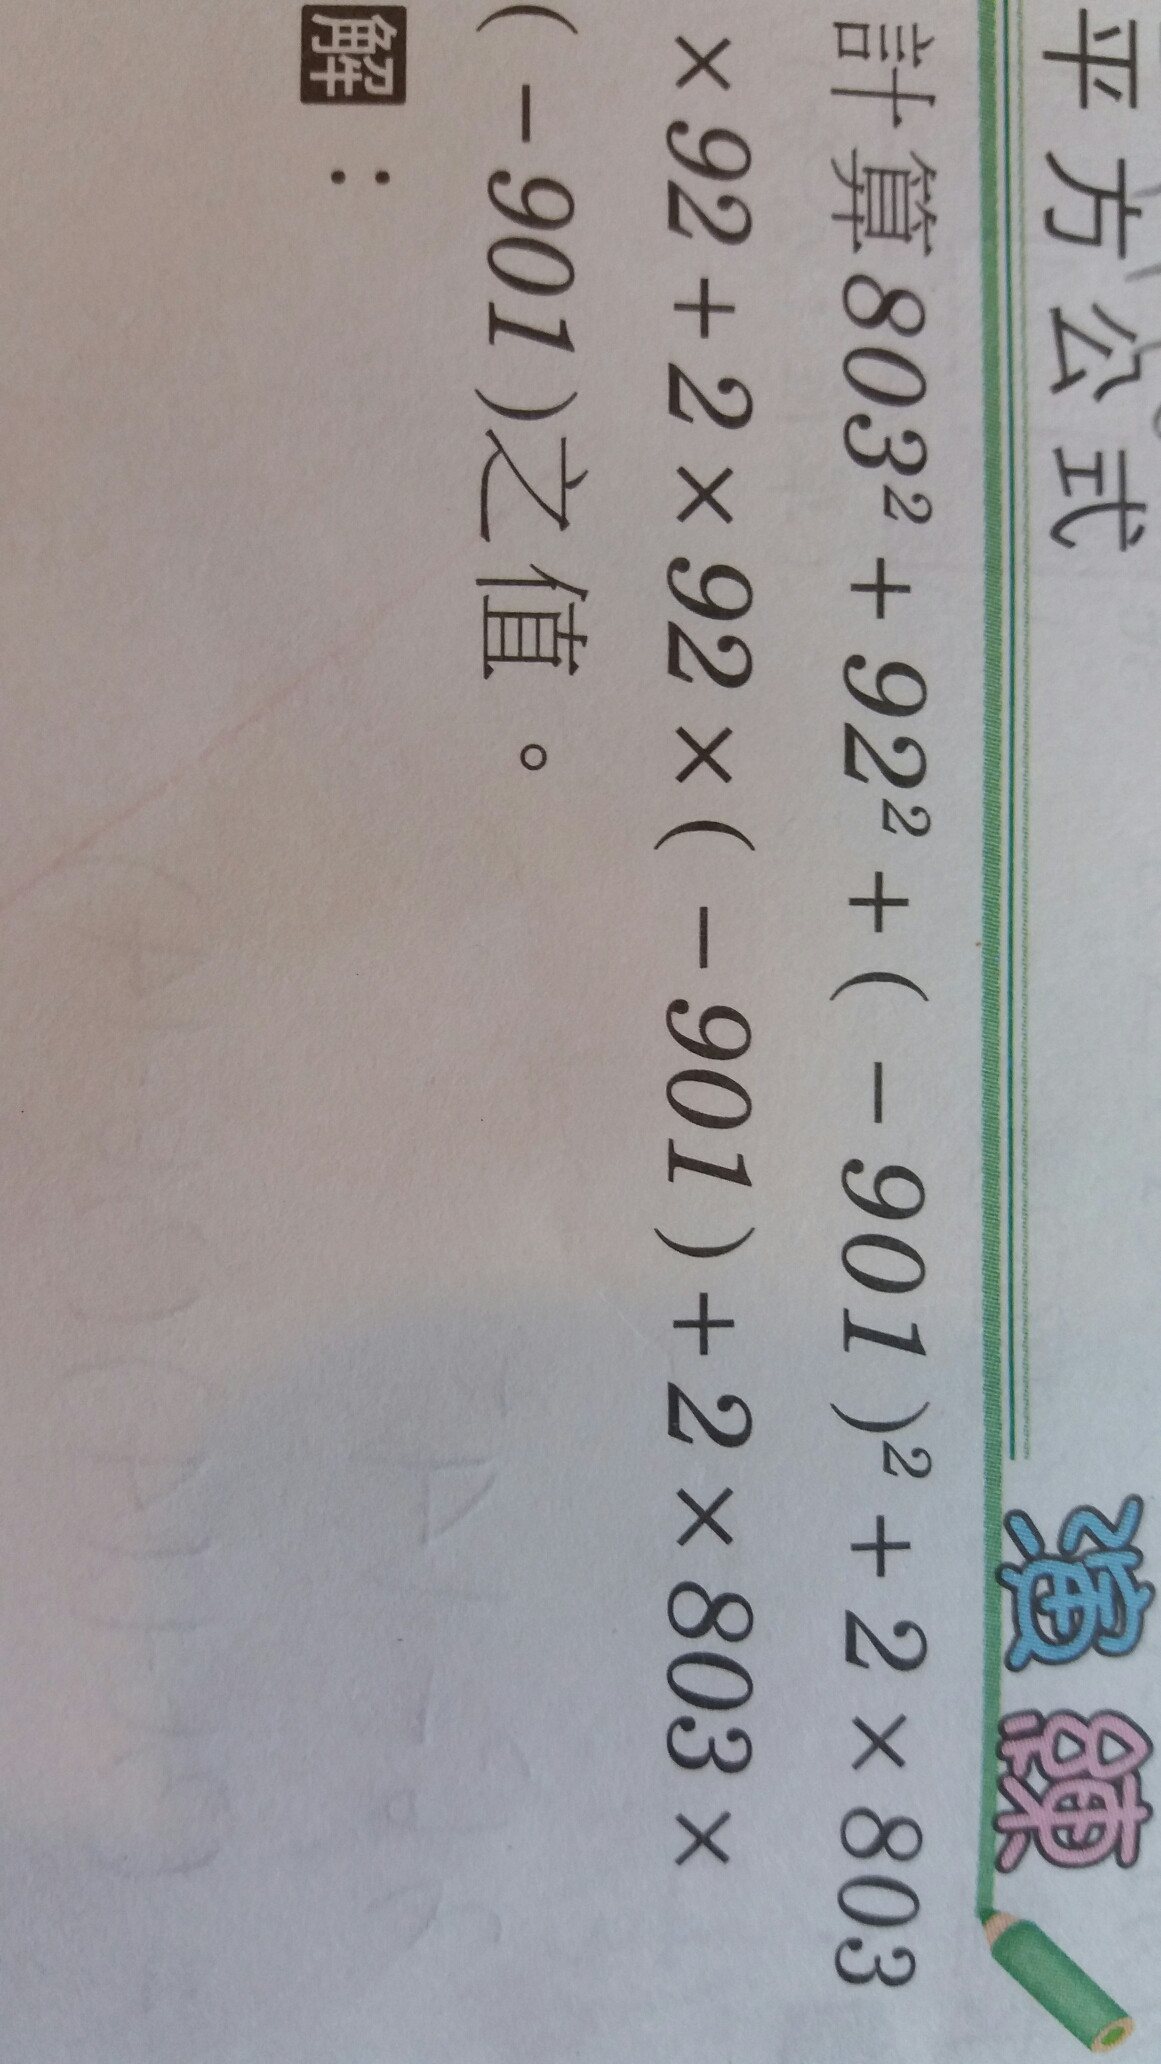 平方公式
演練
計算803²+92²+(-901)²+2×803
×92+2×92×(-901)+2×803×
(-901)之值。
解：